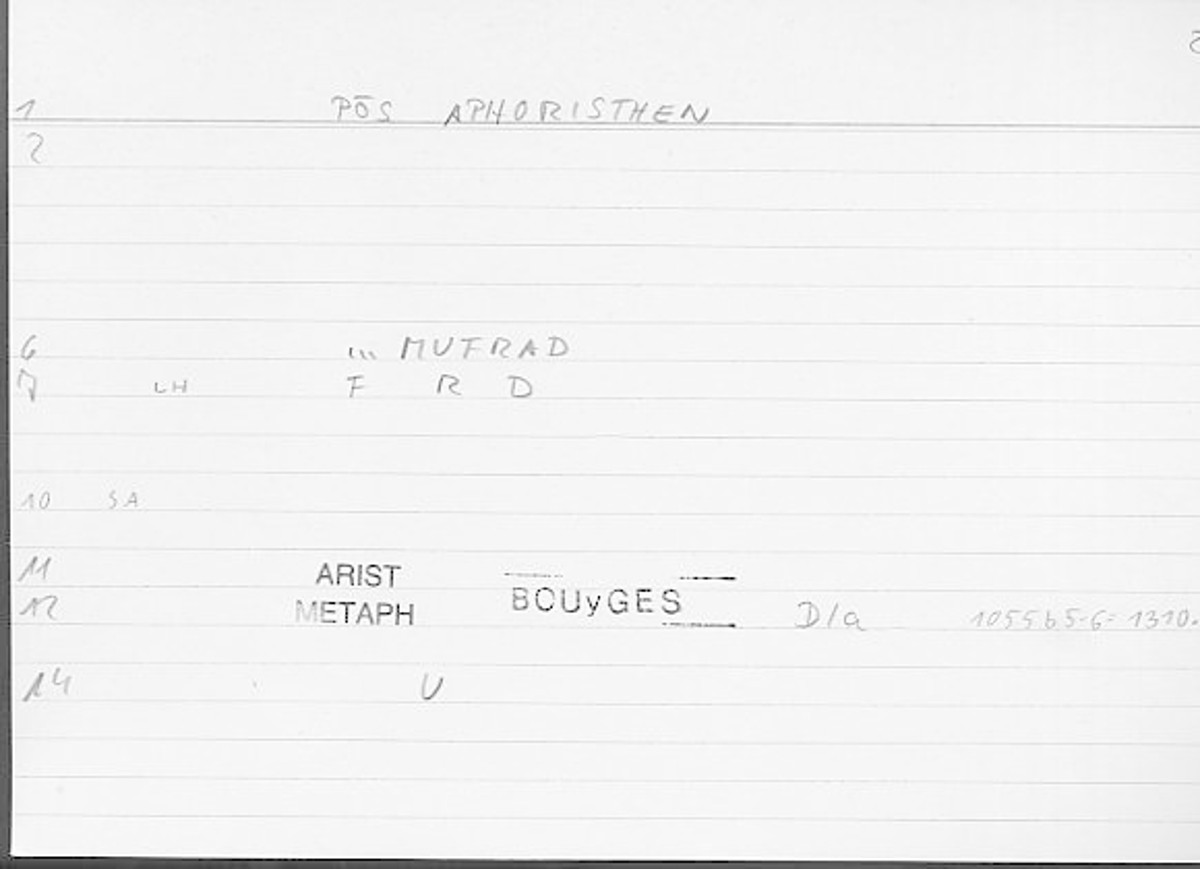 1 PŌS APHORISTHEN
2
6 ... MUFRAD
7 LH F R D
10 SA
11 ARIST
12 METAPH BOUyGES D/a 1055b5-6= 1310.
14 U